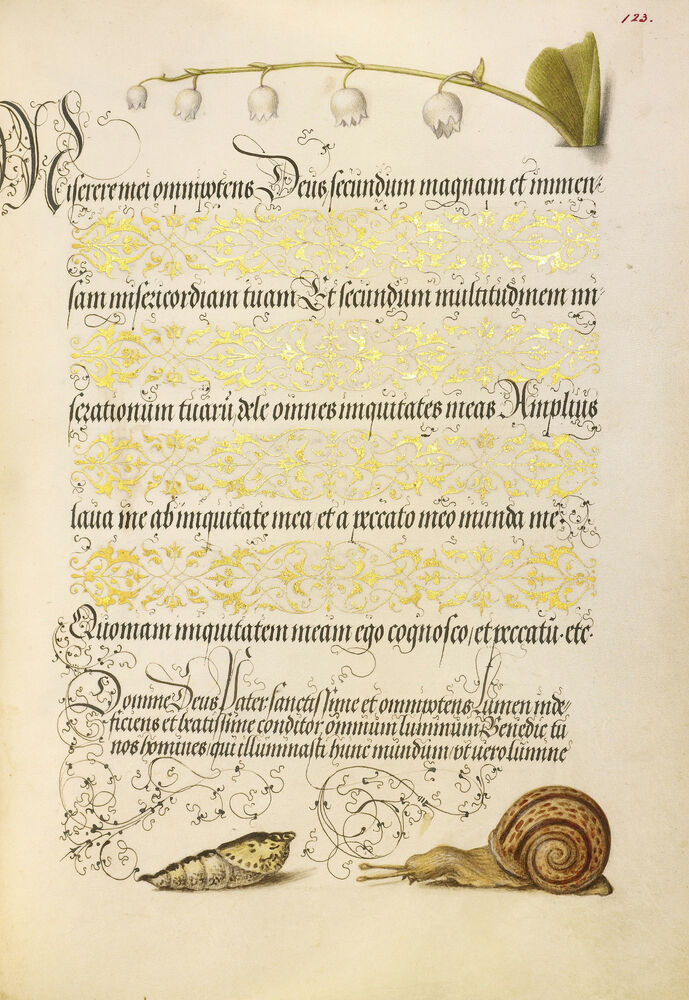 123.
Miserere mei omnipotens Deus secundum magnam et immen-
sam misericordiam tuam Et secundum multitudinem mi-
serationum tuarū dele omnes iniquitates meas Amplius
laua me ab iniquitate mea et a peccato meo munda me
Quoniam iniquitatem meam ego cognosco, et peccatū. etc.
Domine Deus Pater sanctissime et omnipotens Lumen inde-
ficiens et beatissime conditor omnium luminum Benedic tu
nos homines qui illuminasti hunc mundum, vt uero lumine